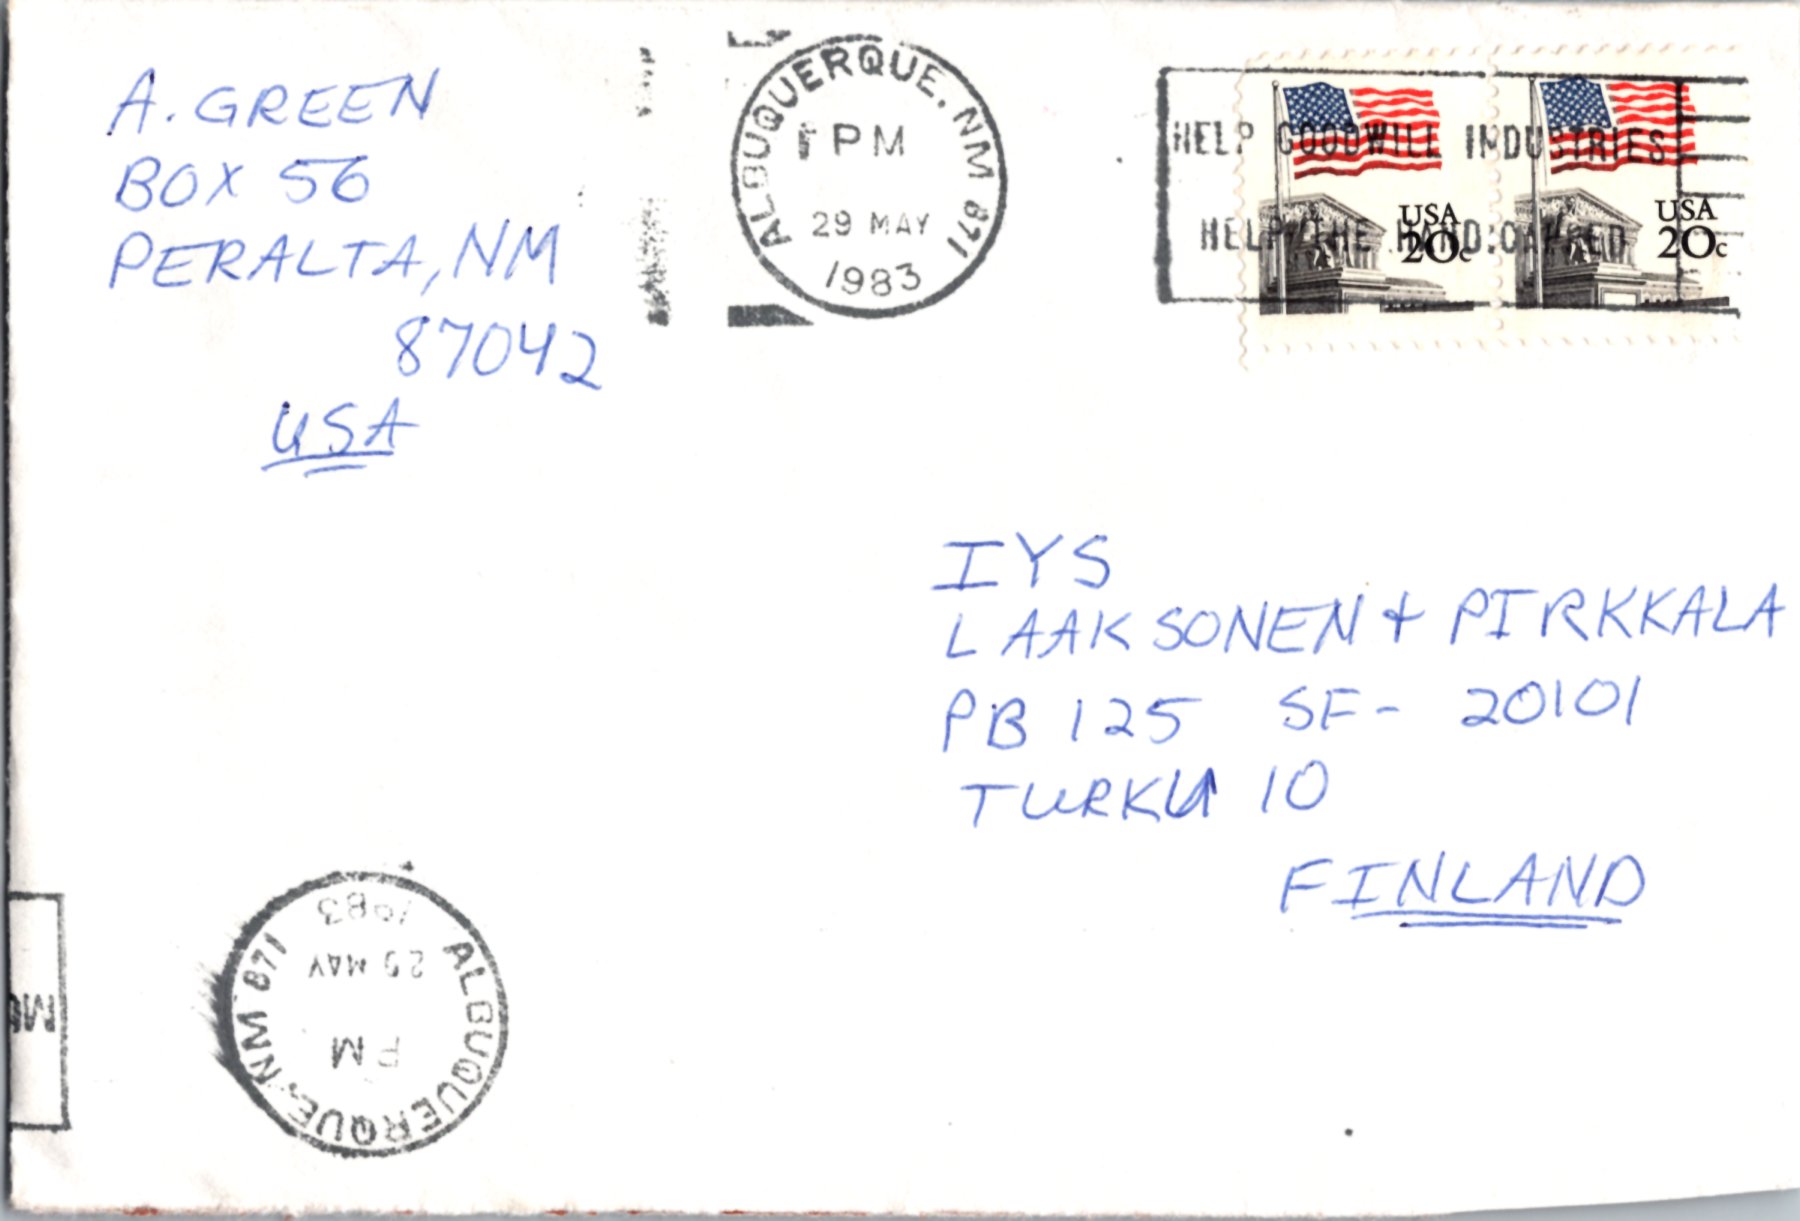 A. GREEN
BOX 56
PERALTA, NM
87042
USA
ALBUQUERQUE, NM 871
PM
29 MAY
1983
HELP GOODWILL INDUSTRIES
HELP THE HANDICAPPED
USA
20c
USA
20c
IYS
LAAKSONEN + PIRKKALA
PB 125 SF- 20101
TURKU 10
FINLAND
ALBUQUERQUE, NM 871
PM
29 MAY
1983